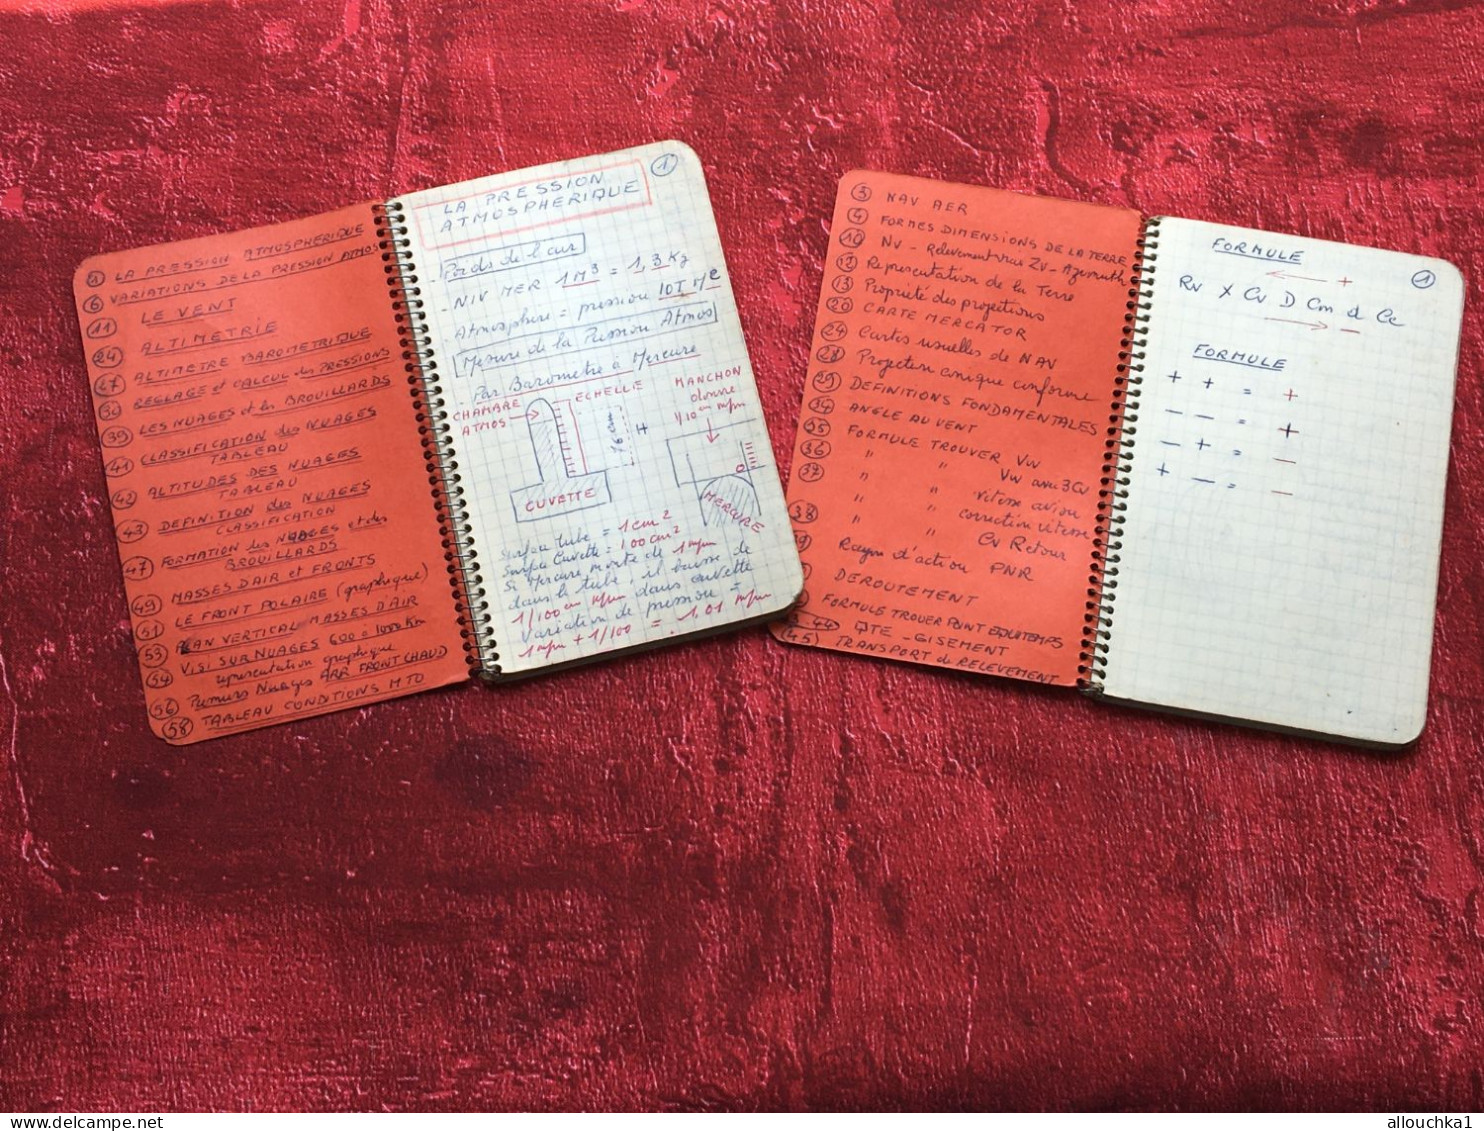 1 LA PRESSION ATMOSPHERIQUE
6 VARIATIONS DE LA PRESSION ATMOS
11 LE VENT
24 ALTIMETRIE
27 ALTIMETRE BAROMETRIQUE
30 REGLAGE et CALCUL des PRESSIONS
39 LES NUAGES et les BROUILLARDS
41 CLASSIFICATION des NUAGES
TABLEAU
42 ALTITUDES DES NUAGES
TABLEAU
43 DEFINITION des NUAGES
CLASSIFICATION
47 FORMATION des NUAGES et des
BROUILLARDS
49 MASSES D'AIR et FRONTS
51 LE FRONT POLAIRE (graphique)
53 PLAN VERTICAL MASSES D'AIR
54 VISI SUR NUAGES 600 à 1000 Km
representation graphique
56 Premiers Nuages ARR FRONT CHAUD
58 TABLEAU CONDITIONS MTO
1
LA PRESSION
ATMOSPHERIQUE
Poids de l'air
- NIV MER 1 M³ = 1,3 Kg
Atmosphère = pression 10T M²
Mesure de la Pression Atmos
Par Barometre à Mercure
CHAMBRE
ATMOS
ECHELLE
76 cm
H
MANCHON
donne
1/10 mm
CUVETTE
0
MERCURE
Surface tube = 1 cm²
Surface Cuvette = 100 cm²
Si Mercure monte de 1 mm
dans le tube, il baisse de
1/100 mm dans cuvette
Variation de pression =
1 mm + 1/100 = 1,01 mm
3 NAV AER
4 FORMES DIMENSIONS DE LA TERRE
10 Nv - Relevement vrai Zv - Azimuth
12 Representation de la Terre
13 Propriété des projections
20 CARTE MERCATOR
24 Cartes usuelles de NAV
28 Projection conique conforme
29 DEFINITIONS FONDAMENTALES
34 ANGLE AU VENT
35 FORMULE TROUVER Vw
36 " " Vw avec 3 Cv
37 " " vitesse avion
" " correction vitesse
38 " " Cv Retour
39 Rayon d'action PNR
DEROUTEMENT
FORMULE TROUVER POINT EQUITEMPS
44 QTE - GISEMENT
(45) TRANSPORT de RELEVEMENT
1
FORMULE
← +
Rv X Cv D Cm d Cc
→ -
FORMULE
+ + = +
- - = +
- + = -
+ - = -
delcampe.net
allouchka1